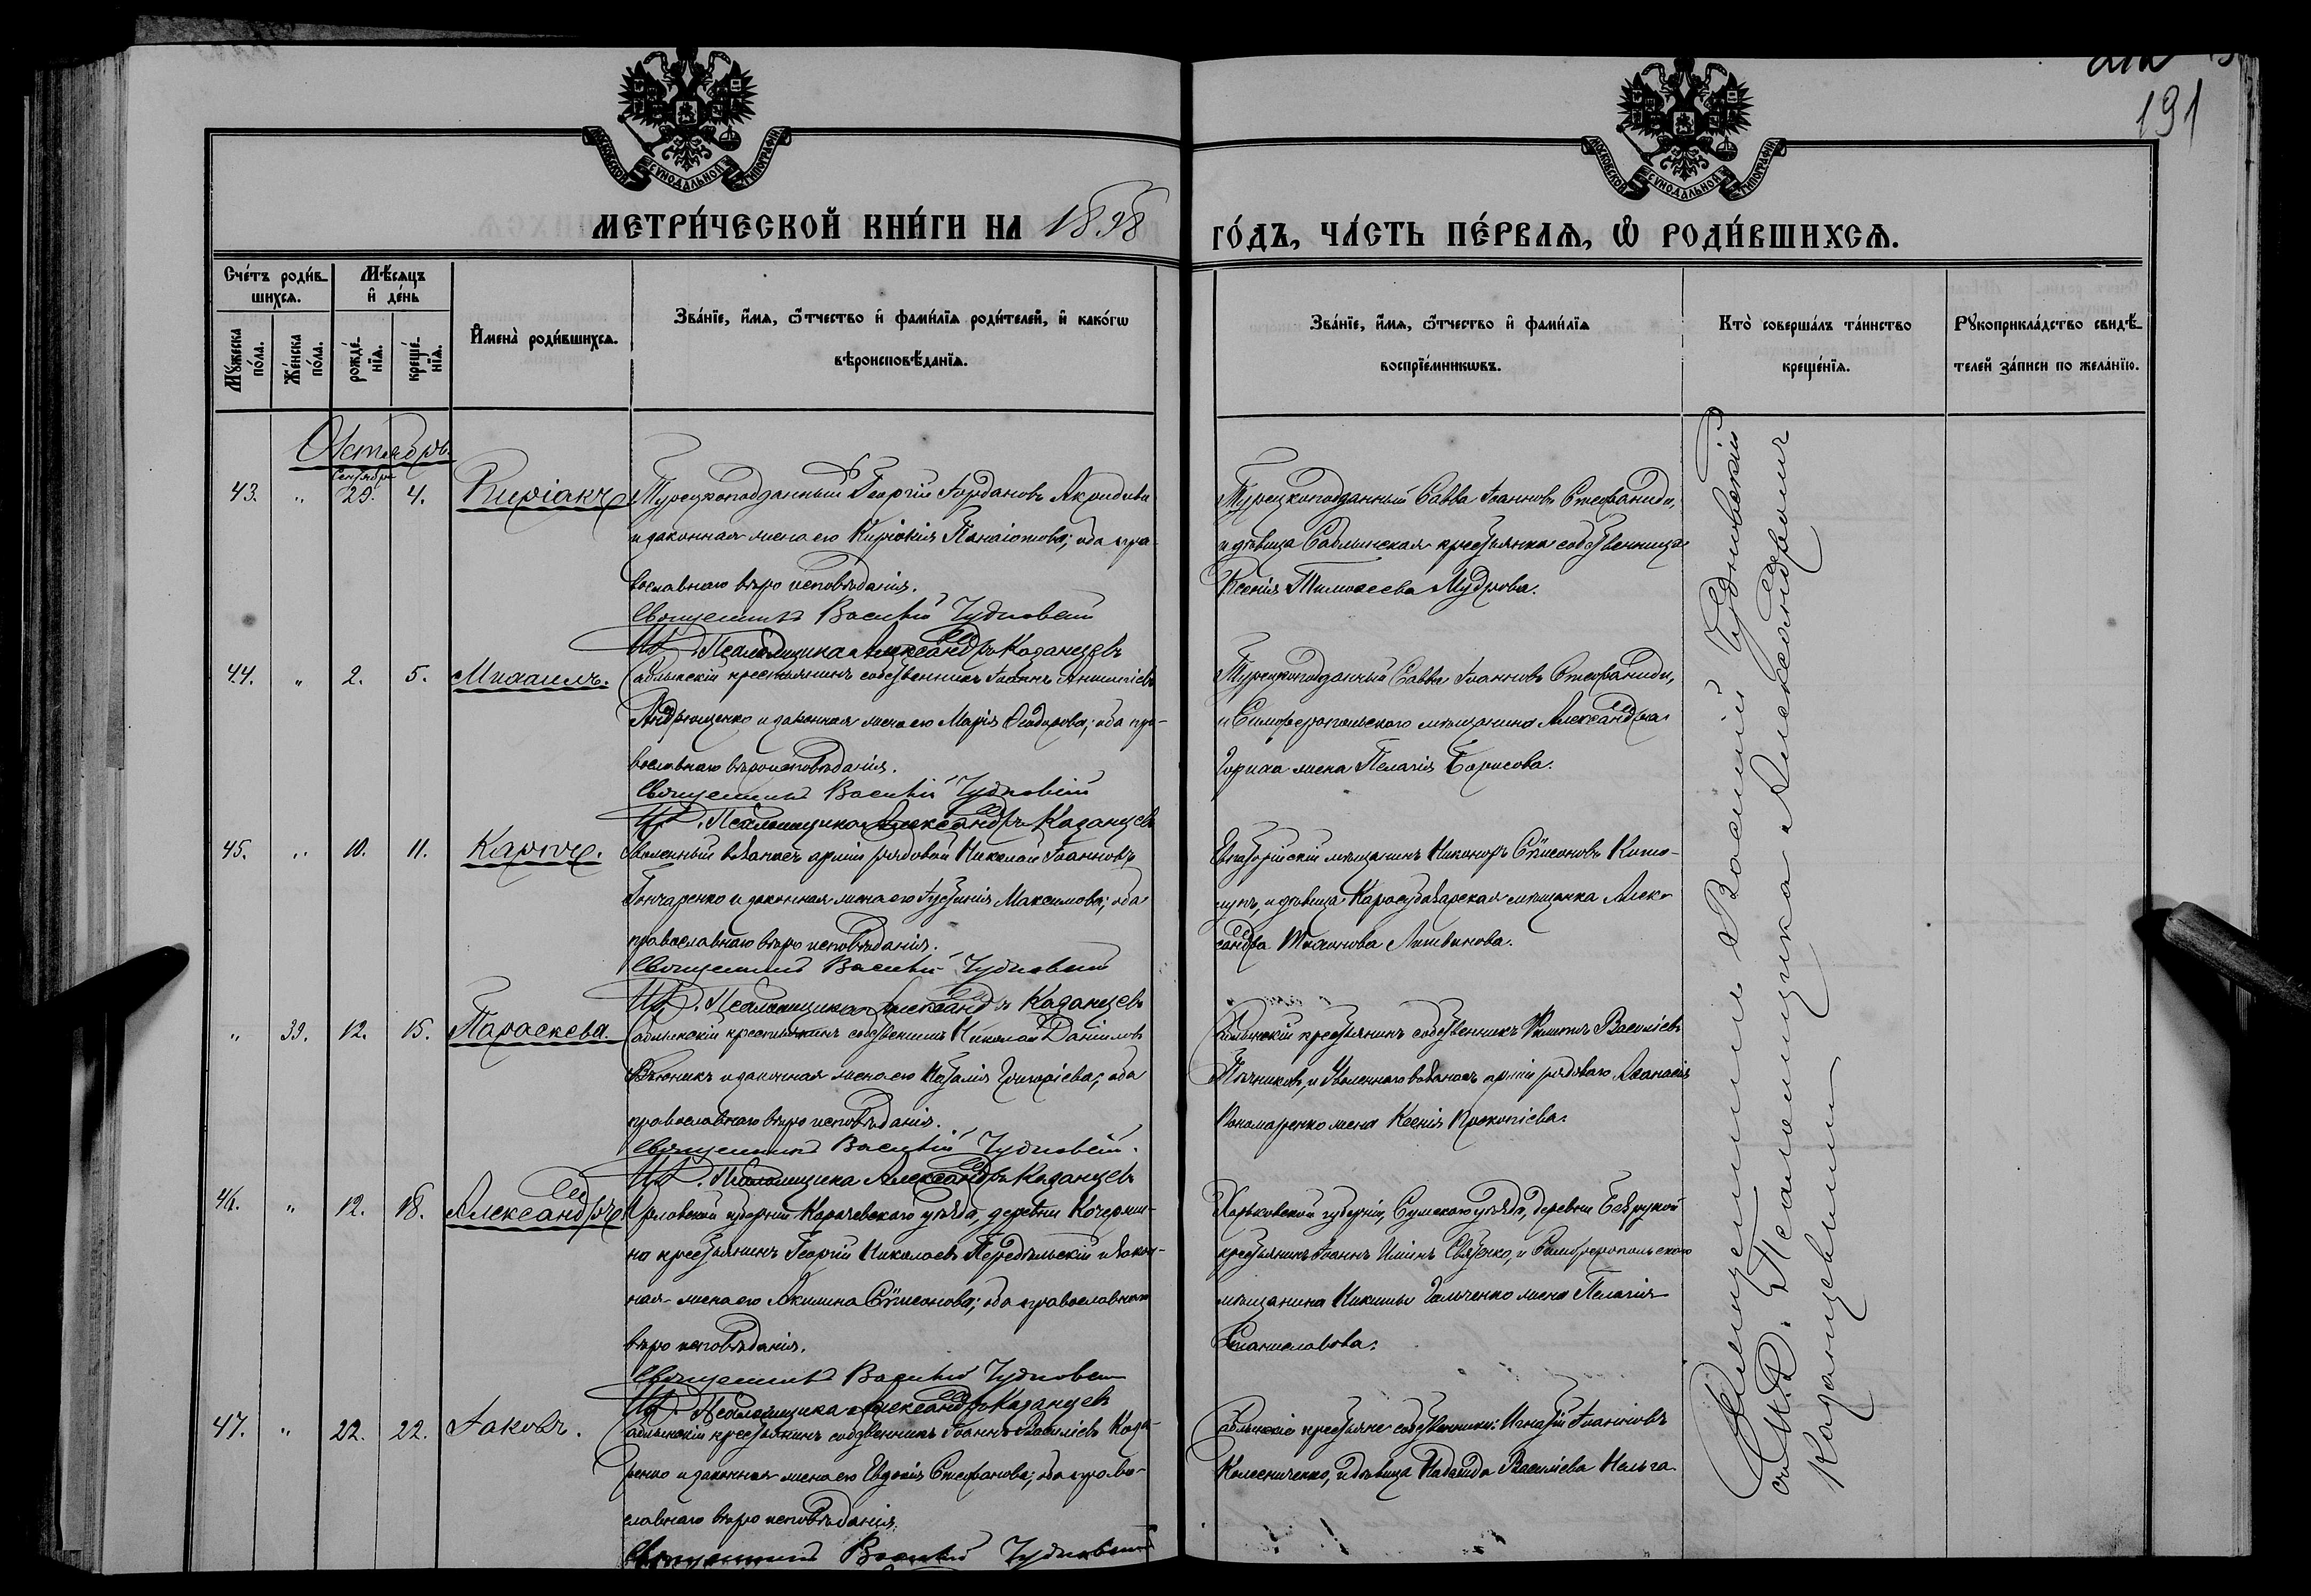 191
МОСКОВСКОЙ СѴНОДАЛЬНОЙ ТИПОГРАФІИ
МОСКОВСКОЙ СѴНОДАЛЬНОЙ ТИПОГРАФІИ
МЕТРИ́ЧЕСКОЙ КНИ́ГИ НА 1898 ГО́ДЪ, ЧА́СТЬ ПЕ́РВАЯ, Ѡ РОДИ́ВШИХСѦ.
Сче́тъ роди́в-
шихсѧ.
Мѣ́сяцъ
и҆ де́нь
Мꙋ́жеска
по́ла.
Же́нска
по́ла.
рожде́-
нїѧ.
креще́-
нїѧ.
И҆мена̀ роди́вшихсѧ.
Зва́нїе, и҆́мѧ, ѻ҆́тчество и҆ фами́лїѧ роди́телей, и҆ како́гѡ
вѣроисповѣ́данїѧ.
Зва́нїе, и҆́мѧ, ѻ҆́тчество и҆ фами́лїѧ
воспрїе́мникѡвъ.
Кто̀ соверша́лъ та́инство
креще́нїѧ.
Рꙋкоприкла́дство свидѣ́-
телей за́писи по жела́нїю.
Октябрь
Сентябрь
43. " 29. 4. Киріакъ
Турецкоподданный Георгій Іордановъ
и законная жена его Киріакія Панаіотова; оба пра-
вославнаго вѣроисповѣданія.
Священникъ Василій Чудновскій
И. д. Псаломщика Александръ Казанцевъ
Турецкоподданный Савва Іоанновъ Стефаниди,
и дѣвица Саблынская крестьянка собственница
Ксенія Тимоѳеева Мудрова.
44. " 2. 5. Михаилъ.
Саблынскій крестьянинъ собственникъ Іоаннъ
Андрющенко и законная жена его Марія Ѳеодорова; оба пра-
вославнаго вѣроисповѣданія.
Священникъ Василій Чудновскій
И. д. Псаломщика Александръ Казанцевъ
Турецкоподданный Савва Іоанновъ Стефаниди,
и Симферопольскаго мѣщанина Александра
жена Пелагія Борисова.
45. " 10. 11. Карпъ.
Уволенный въ запасъ арміи рядовой Николай Іоанновъ
Гончаренко и законная жена его Іустинія Максимова; оба
православнаго вѣроисповѣданія.
Священникъ Василій Чудновскій
И. д. Псаломщика Александръ Казанцевъ
Евпаторійскій мѣщанинъ Никоноръ Симеоновъ
и дѣвица Карасубазарская мѣщанка Алек-
сандра Тихонова Литвинова.
" 39. 12. 15. Параскева.
Саблынскій крестьянинъ собственникъ Николай Даніиловъ
Вьюникъ и законная жена его Наталія Григоріева; оба
православнаго вѣроисповѣданія.
Священникъ Василій Чудновскій.
И. д. Псаломщика Александръ Казанцевъ
Саблынскій крестьянинъ собственникъ Филиппъ Василіевъ
и Уволеннаго въ запасъ арміи рядоваго Аѳанасія
Пономаренко жена Ксенія Прокопіева.
46. " 12. 18. Александръ
Орловской губерніи Карачевскаго уѣзда, деревни
крестьянинъ Георгій Николаевъ и закон-
ная жена его Акилина Симеонова; оба православнаго
вѣроисповѣданія.
Священникъ Василій Чудновскій
И. д. Псаломщика Александръ Казанцевъ
Харьковской губерніи, Сумскаго уѣзда, деревни
крестьянинъ Іоаннъ и Симферопольскаго
мѣщанина Никиты жена Пелагія
Станиславова.
47. " 22. 22. Іаковъ.
Саблынскій крестьянинъ собственникъ Іоаннъ Василіевъ
и законная жена его Евдокія Стефанова; оба право-
славнаго вѣроисповѣданія.
Священникъ Василій Чудновскій
Саблынскіе крестьяне собственники: Игнатій Іоанновъ
Колесниченко, и дѣвица Надежда Василіева
Священникъ Василій Чудновскій
съ И. Д. Псаломщика Александромъ
Казанцевымъ